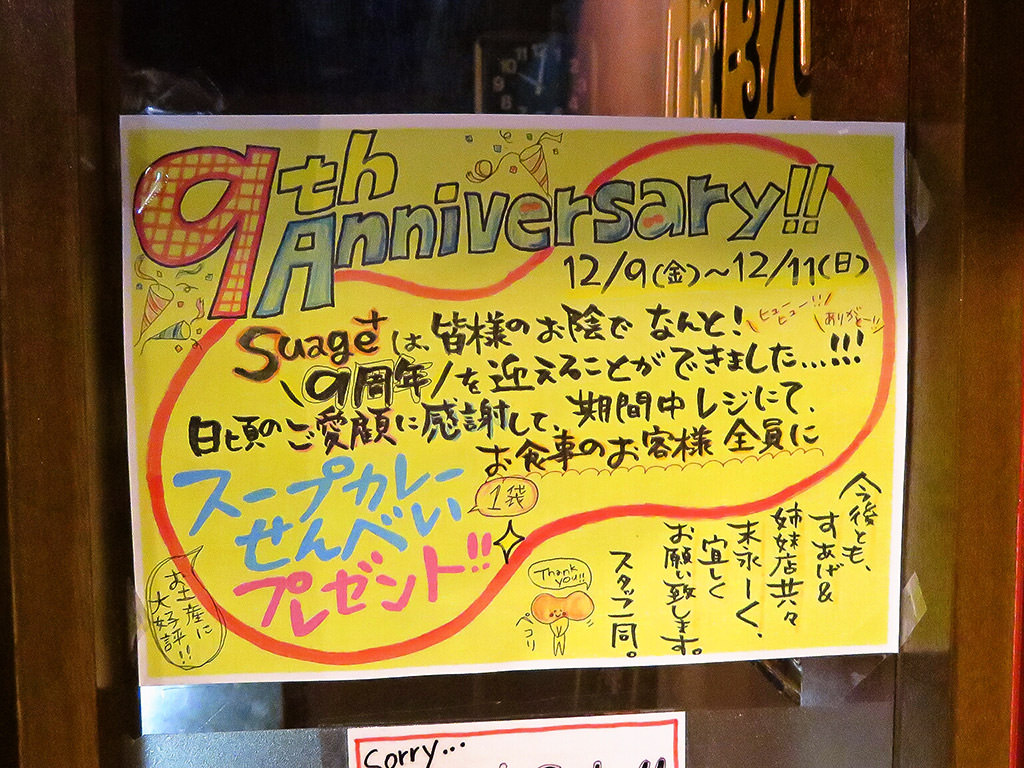 9th
Anniversary!!
12/9(金)～12/11(日)
ヒューヒュー!!!
ありがとー!!
Suage+は、皆様のお陰で なんと!
\9周年/を迎えることができました...!!!
日頃のご愛顧に感謝して、期間中レジにて、
お食事のお客様 全員に
スープカレー
せんべい
1袋
プレゼント!!
お土産に
大好評!!
Thank
you!!
ペコリ
今後とも、
すあげ&
姉妹店共々
末永ーく、
宜しく
お願い致します。
スタッフ一同。
Sorry...
10 11 12
9
8
7